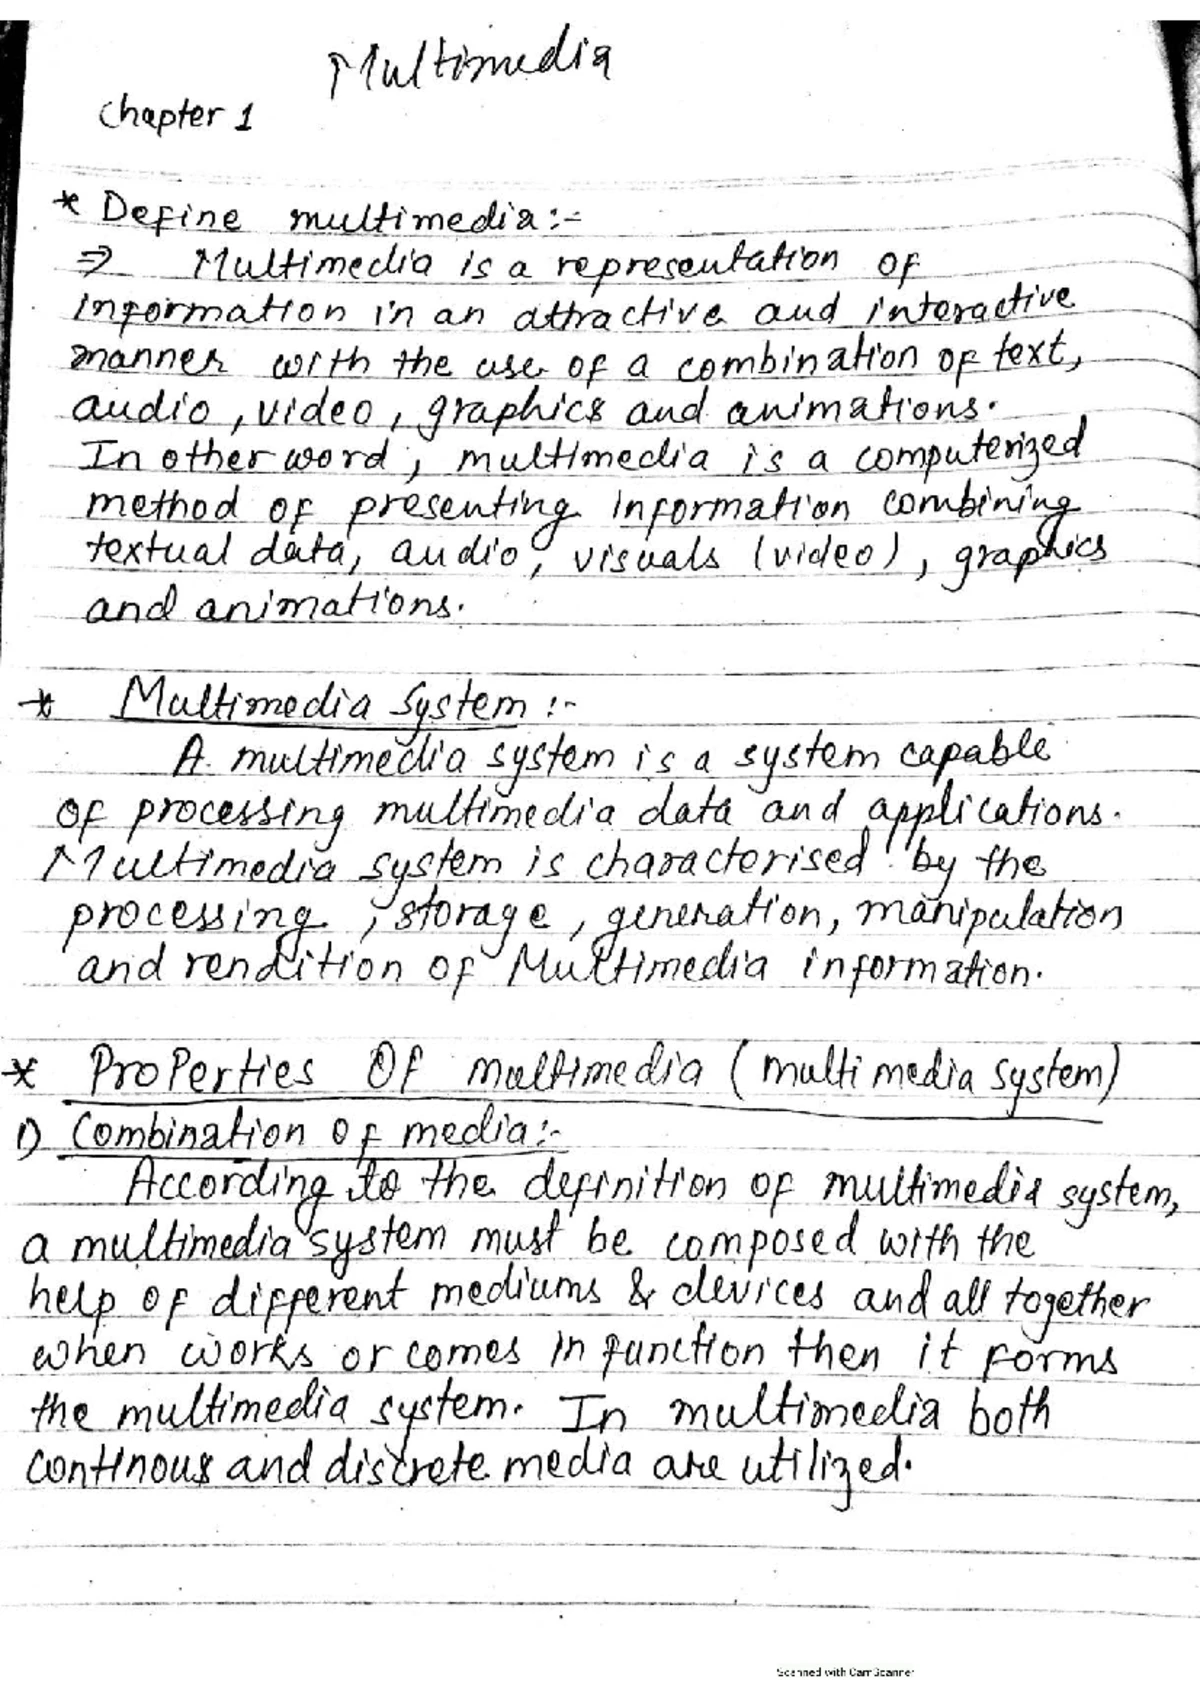 Multimedia
Chapter 1
* Define multimedia:-
⇒ Multimedia is a representation of
information in an attractive and interactive
manner with the use of a combination of text,
audio, video, graphics and animations.
In other word, multimedia is a computerized
method of presenting information combining
textual data, audio, visuals (video), graphics
and animations.
* Multimedia System :-
A multimedia system is a system capable
of processing multimedia data and applications.
Multimedia system is characterised by the
processing, storage, generation, manipulation
and rendition of Multimedia information.
* Properties Of multimedia (multimedia system)
1) Combination of media:-
According to the definition of multimedia system,
a multimedia system must be composed with the
help of different mediums & devices and all together
when works or comes in function then it forms
the multimedia system. In multimedia both
continous and discrete media are utilized.
Scanned with CamScanner